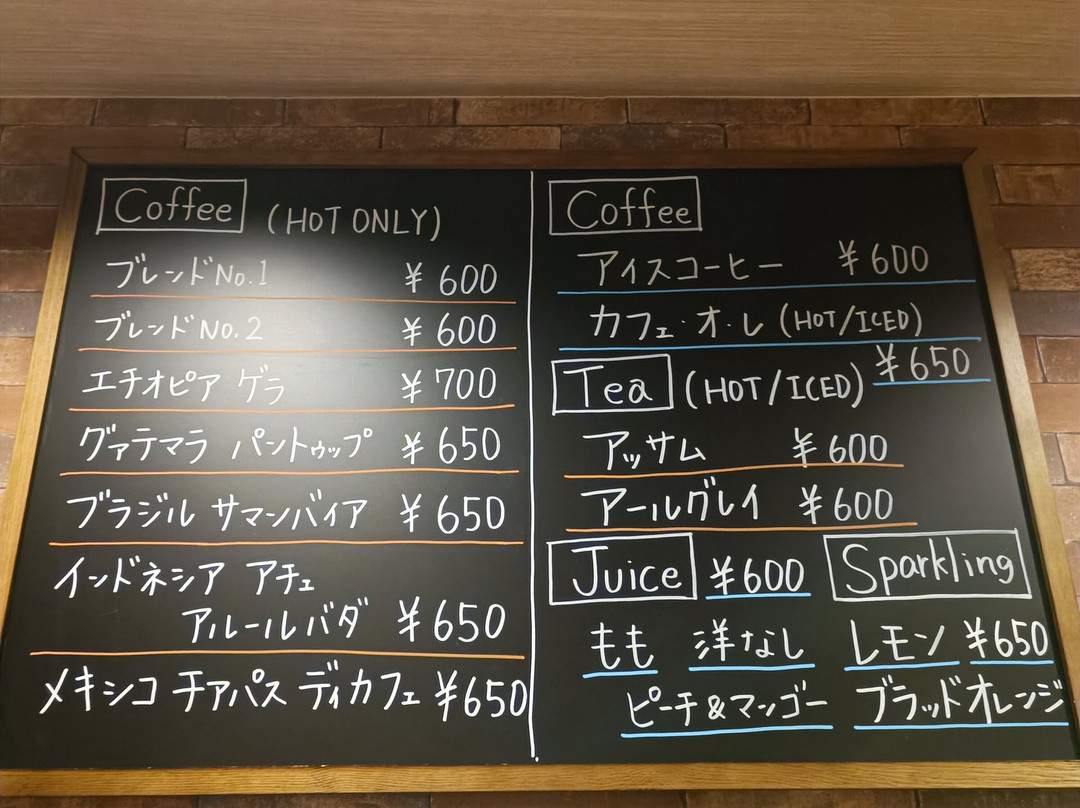 Coffee (HOT ONLY)
ブレンドNo.1 ¥600
ブレンドNo.2 ¥600
エチオピア ゲラ ¥700
グァテマラ パントゥップ ¥650
ブラジル サマンバイア ¥650
インドネシア アチェ
アルールバダ ¥650
メキシコ チアパス ディカフェ ¥650
Coffee
アイスコーヒー ¥600
カフェ・オ・レ (HOT/ICED)
¥650
Tea (HOT/ICED)
アッサム ¥600
アールグレイ ¥600
Juice ¥600
もも 洋なし
ピーチ&マンゴー
Sparkling
レモン ¥650
ブラッドオレンジ